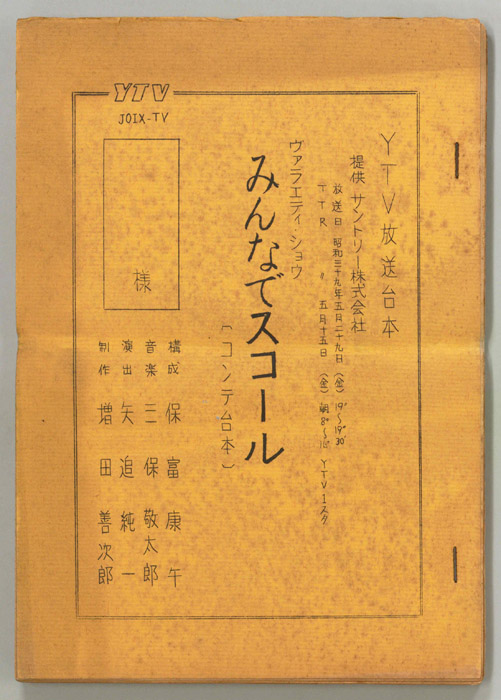 YTV
JOIX-TV
YTV放送台本
提供 サントリー株式会社
放送日 昭和三十九年五月二十九日(金)19°〜19°30′
TTR 〃 五月十五日(金)朝8°〜
YTV1スタ
ヴァラエティ・ショウ
みんなでスコール
(コンテ台本)
様
構成 保富康午
音楽 三保敬太郎
演出 矢追純一
制作 増田善次郎